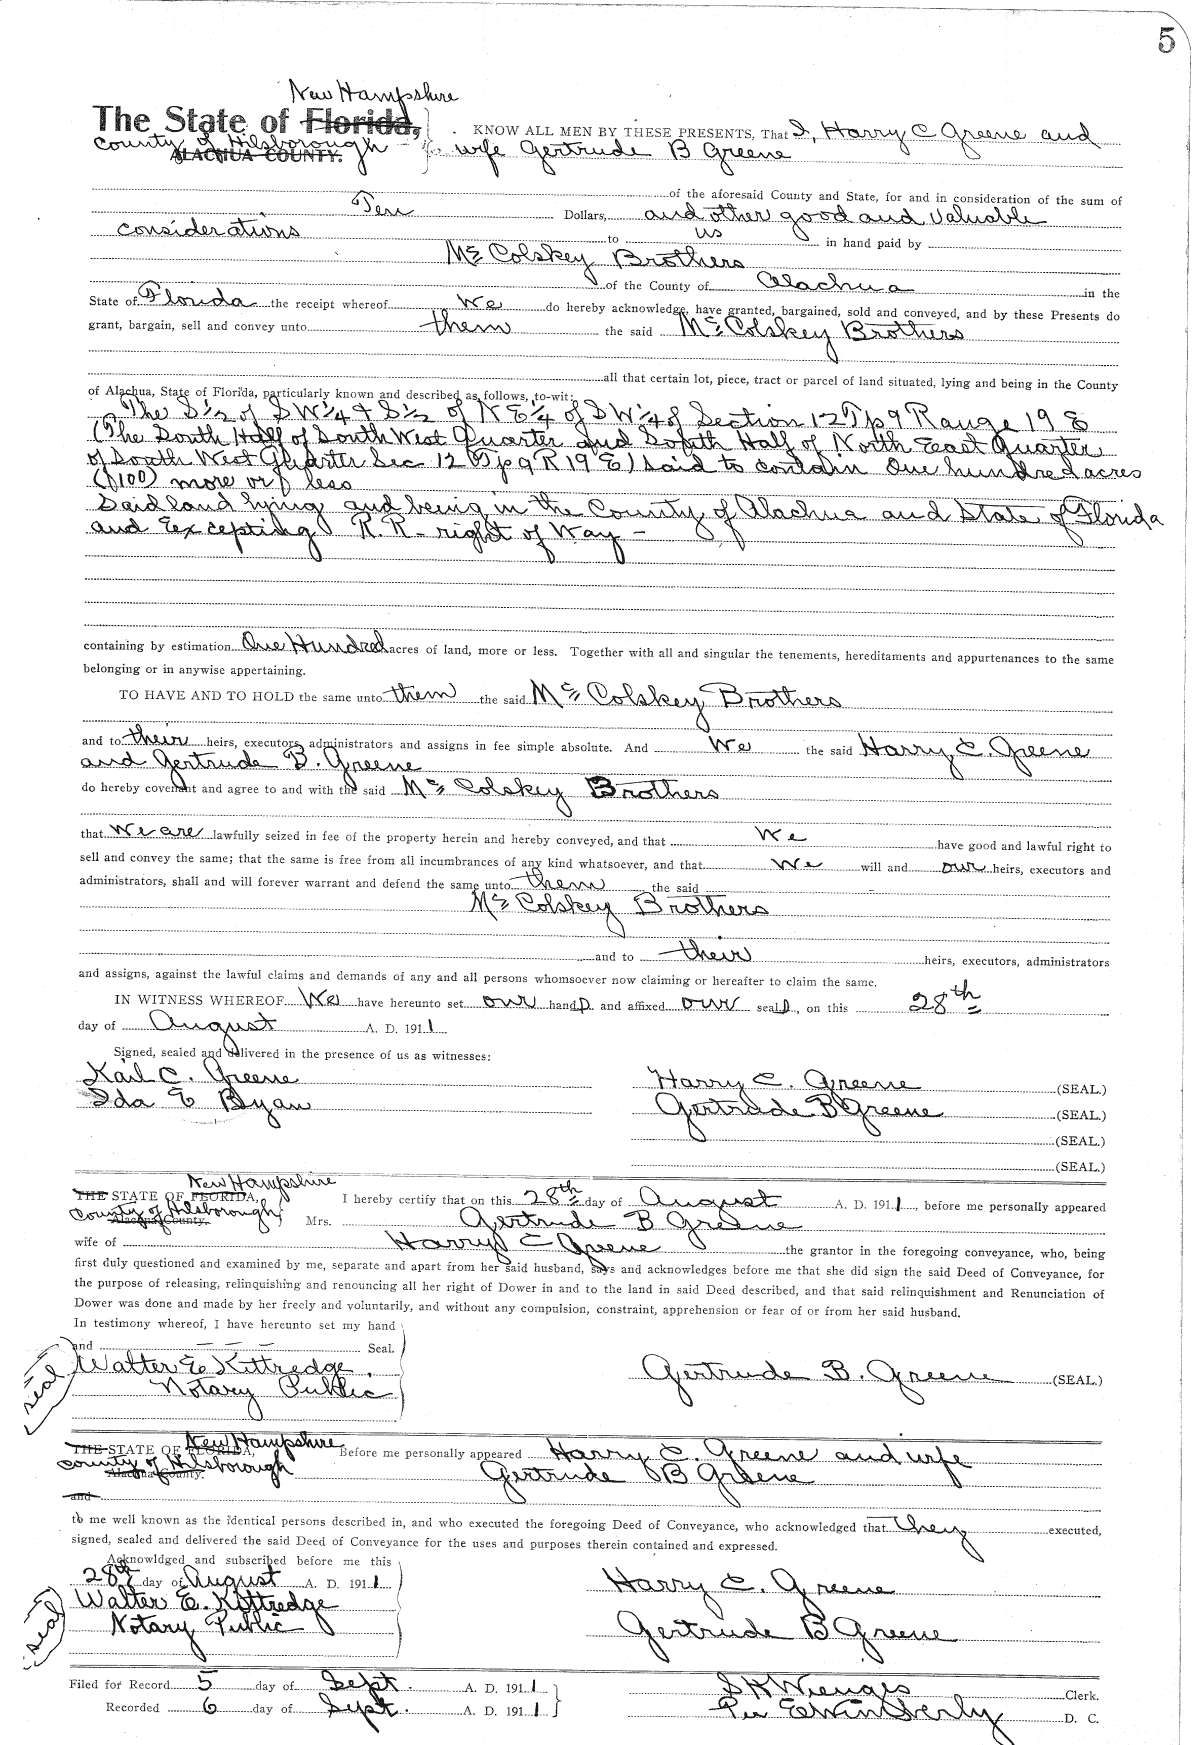 5
New Hampshire
The State of Florida,
KNOW ALL MEN BY THESE PRESENTS, That I, Harry C Greene and
County of Hilsborough
ALACHUA COUNTY.
wife Gertrude B Greene
of the aforesaid County and State, for and in consideration of the sum of
Ten Dollars, and other good and valuable
considerations to us in hand paid by
McColskey Brothers
of the County of Alachua in the
State of Florida the receipt whereof we do hereby acknowledge, have granted, bargained, sold and conveyed, and by these Presents do
grant, bargain, sell and convey unto them the said McColskey Brothers
all that certain lot, piece, tract or parcel of land situated, lying and being in the County
of Alachua, State of Florida, particularly known and described as follows, to-wit:
The S½ of SW¼ & S½ of NE¼ of SW¼ of Section 12 Tp 9 Range 19 E
(The South Half of South West Quarter and South Half of North East Quarter
of South West Quarter Sec 12 Tp 9 R 19 E) said to contain One hundred acres
(100) more or less
Said land lying and being in the County of Alachua and State of Florida
and Excepting R. R. right of Way -
containing by estimation One Hundred acres of land, more or less. Together with all and singular the tenements, hereditaments and appurtenances to the same
belonging or in anywise appertaining.
TO HAVE AND TO HOLD the same unto them the said McColskey Brothers
and to their heirs, executors, administrators and assigns in fee simple absolute. And We the said Harry C. Greene
and Gertrude B. Greene
do hereby covenant and agree to and with the said McColskey Brothers
that we are lawfully seized in fee of the property herein and hereby conveyed, and that We have good and lawful right to
sell and convey the same; that the same is free from all incumbrances of any kind whatsoever, and that We will and our heirs, executors and
administrators, shall and will forever warrant and defend the same unto them the said
McColskey Brothers
and to their heirs, executors, administrators
and assigns, against the lawful claims and demands of any and all persons whomsoever now claiming or hereafter to claim the same.
IN WITNESS WHEREOF We have hereunto set our hands and affixed our seals, on this 28th
day of August A. D. 1911.
Signed, sealed and delivered in the presence of us as witnesses:
Karl C. Greene
Harry C. Greene (SEAL.)
Ida E Ryan
Gertrude B Greene (SEAL.)
(SEAL.)
(SEAL.)
New Hampshire
THE STATE OF FLORIDA,
I hereby certify that on this 28th day of August A. D. 1911, before me personally appeared
County of Hilsborough
Alachua County.
Mrs. Gertrude B Greene
wife of Harry C Greene the grantor in the foregoing conveyance, who, being
first duly questioned and examined by me, separate and apart from her said husband, says and acknowledges before me that she did sign the said Deed of Conveyance, for
the purpose of releasing, relinquishing and renouncing all her right of Dower in and to the land in said Deed described, and that said relinquishment and Renunciation of
Dower was done and made by her freely and voluntarily, and without any compulsion, constraint, apprehension or fear of or from her said husband.
In testimony whereof, I have hereunto set my hand
and Seal.
(seal)
Walter E Kittredge
Gertrude B. Greene (SEAL.)
Notary Public
New Hampshire
THE STATE OF FLORIDA,
Before me personally appeared Harry C. Greene and wife
County of Hilsborough
Alachua County.
Gertrude B Greene
and
to me well known as the identical persons described in, and who executed the foregoing Deed of Conveyance, who acknowledged that they executed,
signed, sealed and delivered the said Deed of Conveyance for the uses and purposes therein contained and expressed.
Acknowldged and subscribed before me this
28th day of August A. D. 1911
Harry C. Greene
(seal)
Walter E. Kittredge
Notary Public
Gertrude B Greene
Filed for Record 5 day of Sept. A. D. 1911.
S H Wienges Clerk.
Recorded 6 day of Sept. A. D. 1911
Per E Wimberly D. C.